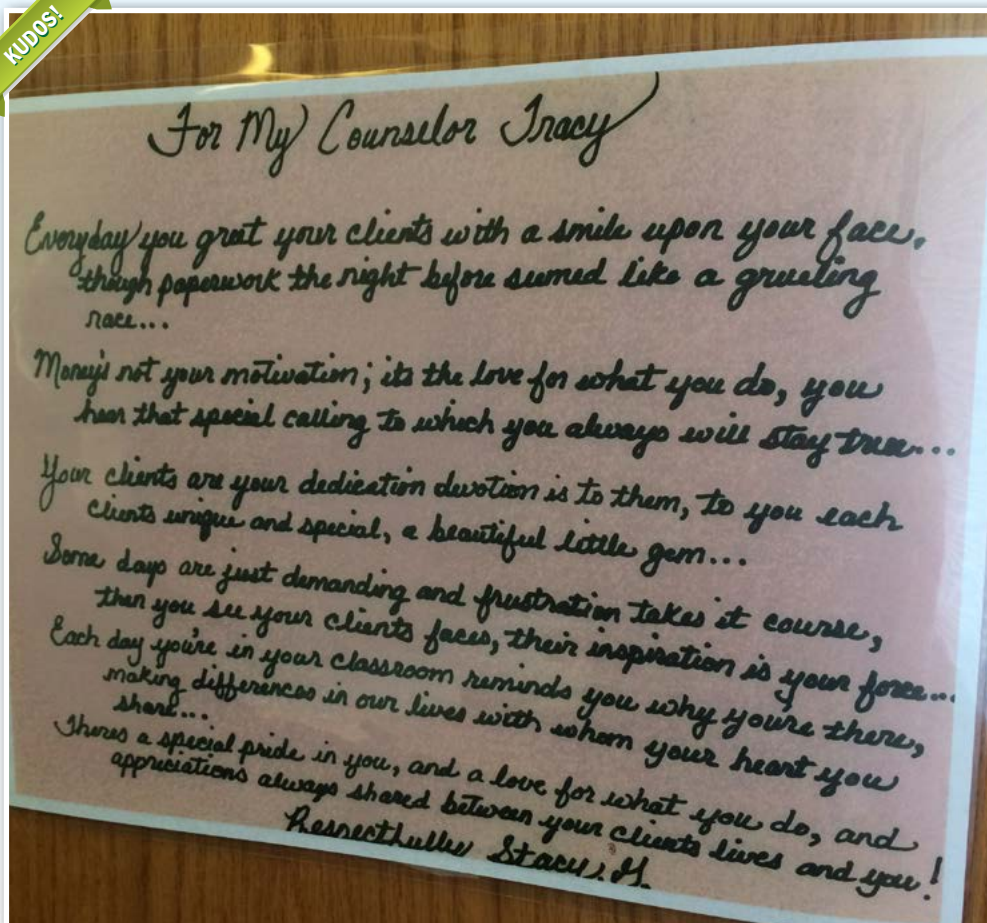 KUDOS!
For My Counselor Tracy
Everyday you greet your clients with a smile upon your face,
though paperwork the night before seemed like a grueling
race...
Money's not your motivation; its the love for what you do, you
hear that special calling to which you always will stay true...
Your clients are your dedication devotion is to them, to you each
clients unique and special, a beautiful little gem...
Some days are just demanding and frustration takes it course,
then you see your clients faces, their inspiration is your force...
Each day you're in your classroom reminds you why you're there,
making differences in our lives with whom your heart you
share...
Theres a special pride in you, and a love for what you do, and
appriciations always shared between your clients lives and you!
Respectfully Stacy. G.